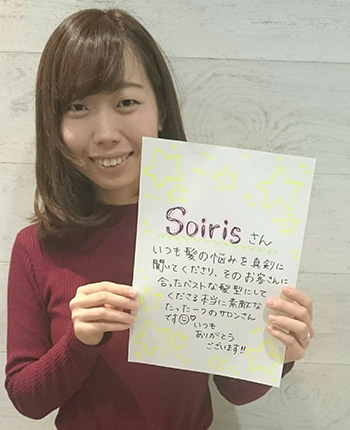 Soirisさん
いつも髪の悩みを真剣に
聞いてくださり、そのお客さんに
合ったベストな髪型にして
くださる本当に素敵な
たった一つのサロンさん
です☺♡ いつも
ありがとう
ございます!!